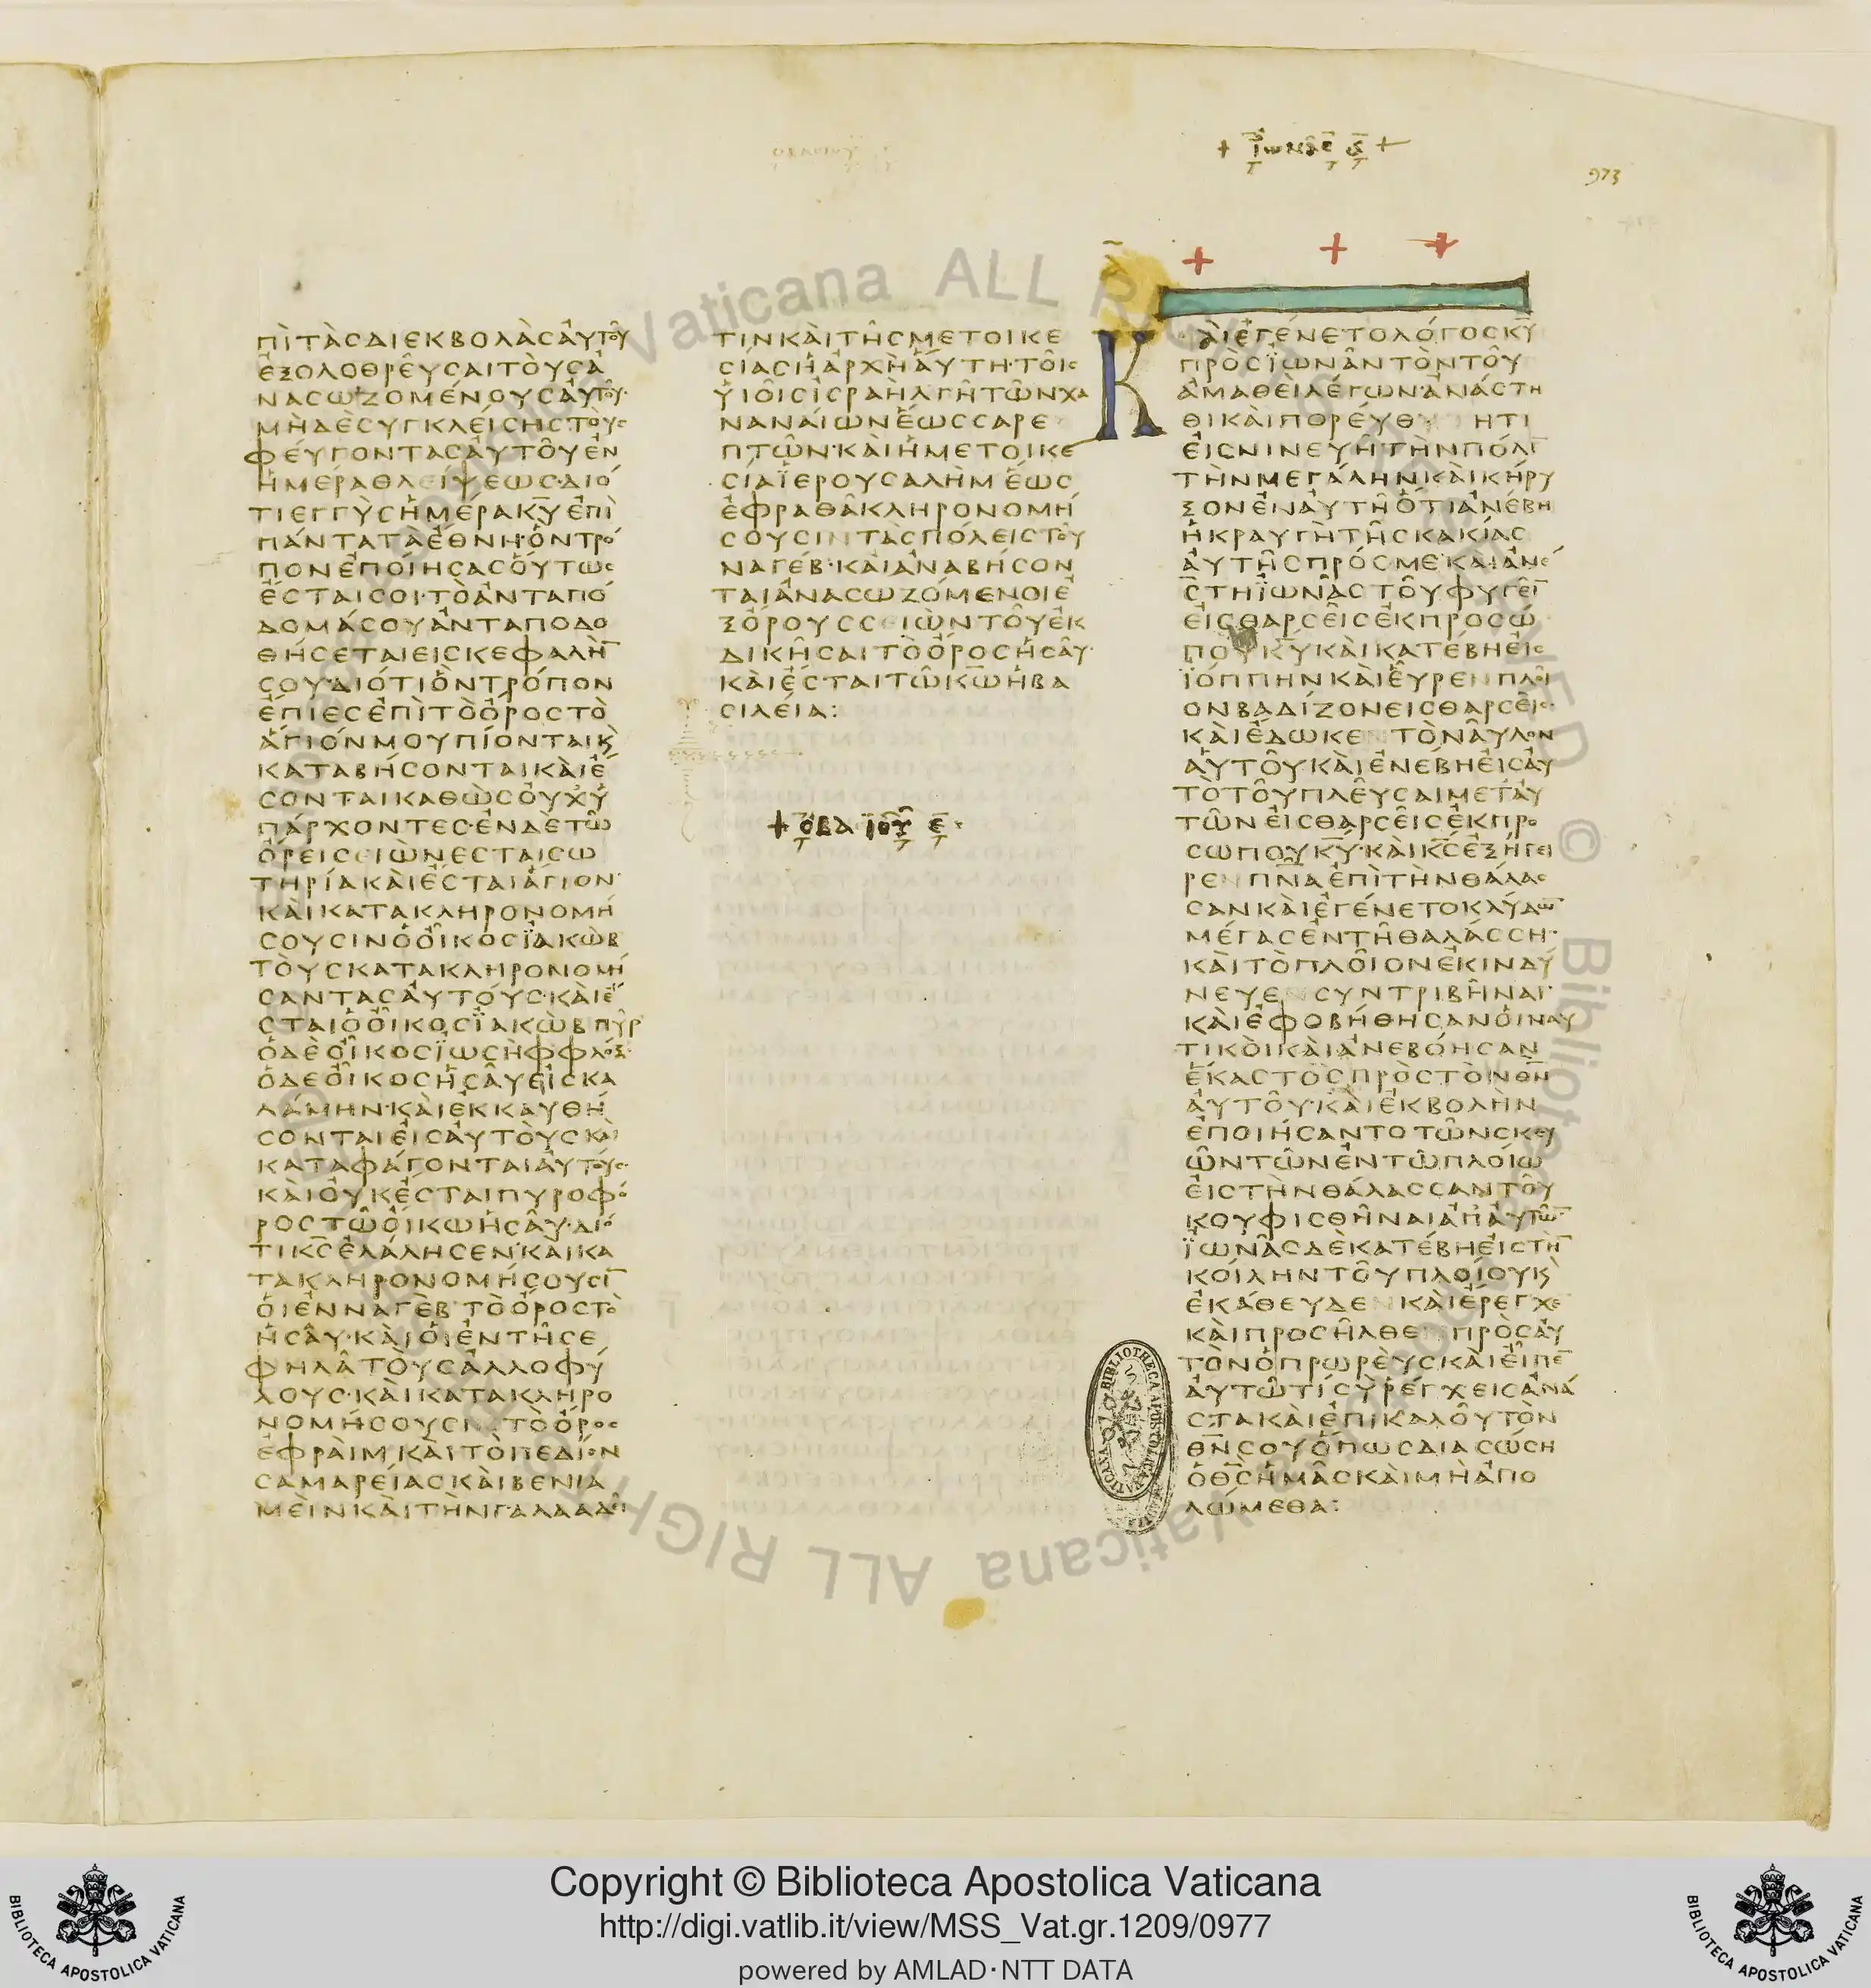 + ϊωνας ϛ +
973
πὶτὰσδιεκβολὰσἀυτοῦ
ἐξολοθρεῦσαιτοὺσἀ
νασωζομένουσἀυτοῦ·
μὴδὲσυγκλείσηστοὺσ
φέυγοντασἀυτοῦἐν
ἡμέραθλείψεωσ·διό
τιεγγὺσἡμέρακ̅υ̅ἐπὶ
πάνταταἔθνη·ὃντρό
πονἐποίησασόὕτωσ
ἔσταισοι·τὸἀνταπό
δομάσουἀνταποδο
θήσεταιεισκεφαλὴ̅
σου·διότιὃντρόπον
ἔπιεσἐπὶτὸὄροστὸ
ἅγιόνμουπίονταικ̀
καταβήσονταικὰιἔ
σονταικαθὼσὀυχὑ
πάρχοντεσ·ἐνδὲτῶ
ὄρεισειὼνεσταισω
τηρίακὰιἔσταιἅγιον·
κὰικατακληρονομή
σουσινὁὀῖκοσϊακὼβ
τοὺσκατακληρονομή
σαντασἀυτούσ·κὰιἔ
σταιὁὀῖκοσϊακὼβπῦρ
ὁδὲὀῖκοσϊωσὴφφλόξ·
ὁδεὀῖκοσἠσᾶυεἰσκα
λάμην·κὰιἐκκαυθή
σονταιἐισἀυτοὺσκὰι
καταφάγονταιἀυτούσ·
κὰιὀυκἔσταιπυροφό
ροστῶὀίκωἠσᾶυ·διό
τικ̅σ̅ἐλάλησεν·κὰικα
τακληρονομήσουσι̅
ὁιἐνναγὲβτὸὄροστὸ
ἠσᾶυ·κὰιὁιἐντῆσε
φηλᾶτοὺσἀλλοφύ
λουσ·κὰικατακληρο
νομήσουσιντὸὄροσ
ἐφράιμκὰιτὸπεδίον
σαμαρείασκὰιβενια
μὲινκὰιτὴνγαλααδῖ
τινκὰιτῆσμετοικε
σίασἡἀρχὴἅυτη·τοῖσ
ὑιοῖσἰσραὴλγῆτῶνχα
ναναίωνἕωσσαρε
πτῶν·κὰιἡμετοικε
σίαϊερουσαλὴμἕωσ
ἐφραθᾶκληρονομή
σουσιντὰσπόλειστοῦ
ναγέβ·κὰιἀναβήσον
ταιἀνασωζόμενοιἐ
ξόρουσσειὼντοῦἐκ
δικῆσαιτὸὄροσἠσᾶυ·
κὰιἔσταιτῶκ̅ω̅ἡβα
σιλεία:
+ οβδϊου ε·
Κὰιἐγένετολόγοσκ̅υ̅
πρὸσϊωνᾶντὸντοῦ
ἀμαθεὶλέγων·ἀνάστη
θικὰιπορέυθητι
ἐισνινευῆτὴνπόλι̅
τὴνμεγάληνκὰικήρυ
ξονἐνἀυτῆὅτιἀνέβη
ἡκραυγὴτῆσκακίασ
ἀυτῆσπρόσμε·κὰιἀνέ
στηϊωνᾶστοῦφυγεῖ̅
ἐισθαρσεὶσἐκπροσώ
πουκ̅υ̅κὰικατέβηἐισ
ϊόππηνκὰιἐῦρενπλοῖ
ονβαδίζονεισθαρσεὶσ·
κὰιἔδωκεντὸνᾶυλον
ἀυτοῦκὰιἐνέβηἐισἀυ
τὸτοῦπλεῦσαιμετἀυ
τῶνἐισθαρσεὶσἐκπρο
σώπουκ̅υ̅·κὰικ̅σ̅ἐξήγει
ρενπ̅ν̅αἐπὶτὴνθάλασ
σανκὰιἐγένετοκλύδω̅
μέγασἐντῆθαλάσση·
κὰιτὸπλοῖονἐκινδύ
νευενσυντριβῆναι·
κὰιἐφοβήθησανὁιναυ
τικὸικὰιἀνεβόησαν
ἕκαστόσπρὸστὸνθ̅ν̅
ἀυτοῦ·κὰιἐκβολὴν
ἐποιήσαντοτῶνσκευ
ῶντῶνἐντῶπλοίω
ἐιστὴνθάλασσαντοῦ
κουφισθῆναιἀπἀυτῶ̅·
ϊωνᾶσδὲκατέβηἐιστὴ̅
κοίληντοῦπλοίουκ̀
ἐκάθευδενκὰιἔρεγχε·
κὰιπροσῆλθενπρὸσἀυ
τὸνὁπρωρεὺσκὰιἐῖπε̅
ἀυτῶτίσὺρέγχεισἀνά
στακὰιἐπικαλοῦτὸν
θ̅ν̅σουὅπωσδιασώση
ὁθ̅σ̅ἡμᾶσκὰιμὴἀπο
λώμεθα:
BIBLIOTHECA APOSTOLICA VATICANA
Copyright © Biblioteca Apostolica Vaticana
http://digi.vatlib.it/view/MSS_Vat.gr.1209/0977
powered by AMLAD·NTT DATA
BIBLIOTECA APOSTOLICA VATICANA
BIBLIOTECA APOSTOLICA VATICANA